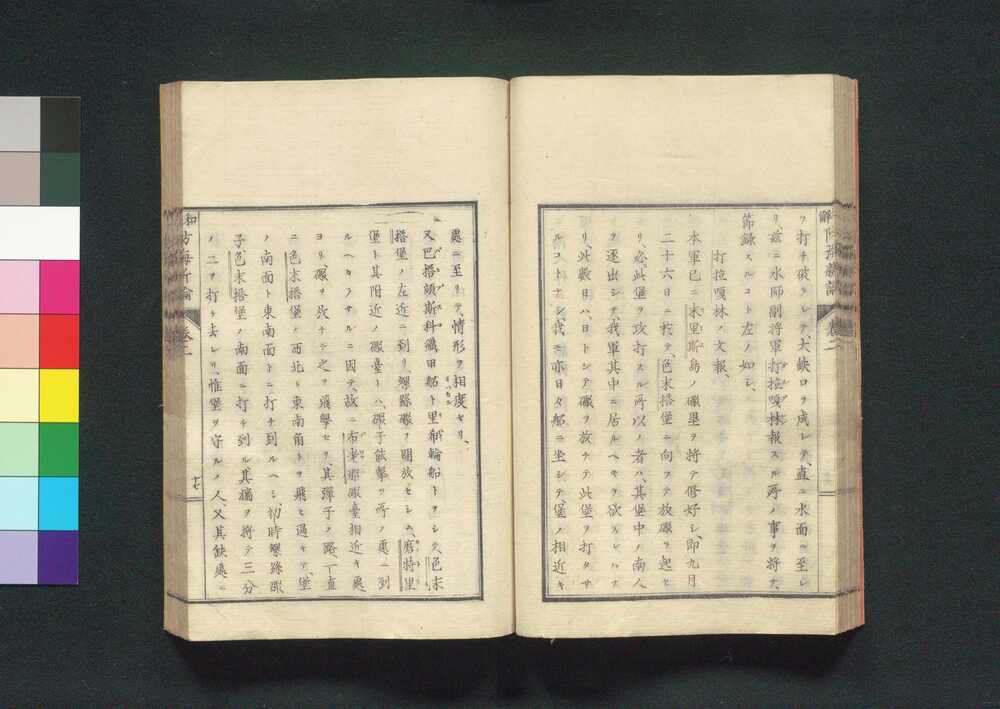 ヲ打チ破ラレテ、大缺口ヲ成レテ、直ニ水面ニ至レ
リ、玆ニ水師副將軍打拉嘎林報スル所ノ事ヲ將テ、
節錄スルコト左ノ如シ、
打拉嘎林ノ文報、
本軍已ニ末里斯島ノ礮壘ヲ將テ修好シ、即九月
二十六日ニ於テ、色末搭堡ニ向ヲテ放礮ヲ起セ
リ、必此堡ヲ攻打スル所以ノ者ハ、其堡中ノ南人
ヲ逐出シテ、我軍其中ニ居ルヘキヲ欲スレハナ
リ、此數日ハ、日トシテ礮ヲ放チテ此堡ヲ打タサ
ルコトナシ、我モ亦日々船ニ坐シテ、堡ノ相近キ
處ニ至リテ、情形ヲ相度セリ、
又巴搭頓斯科鐵甲船ト里郝輪船トヲシテ、色末
搭堡ノ左近ニ到リ、螺絲礮ヲ開放セシム、磨特里
堡ト其附近ノ礮臺トハ、礮子能擊ツ所ノ處ニ到
ルヘカラサルニ因テ、故ニ布來那礮臺相近キ處
ヨリ礮ヲ放チテ之ヲ飛擊セリ、其彈子ノ路一直
ニ色末搭堡ノ西北ト東南角トヲ飛ヒ過キテ、堡
ノ南面ト東南面トニ打チ到ルヘシ、初時螺絲礮
子色末搭堡ノ南面ニ打チ到ル、其牆ヲ將テ三分
ノ二ヲ打チ去レリ、惟堡ヲ守ルノ人、又其缺處ニ
卷二
十七